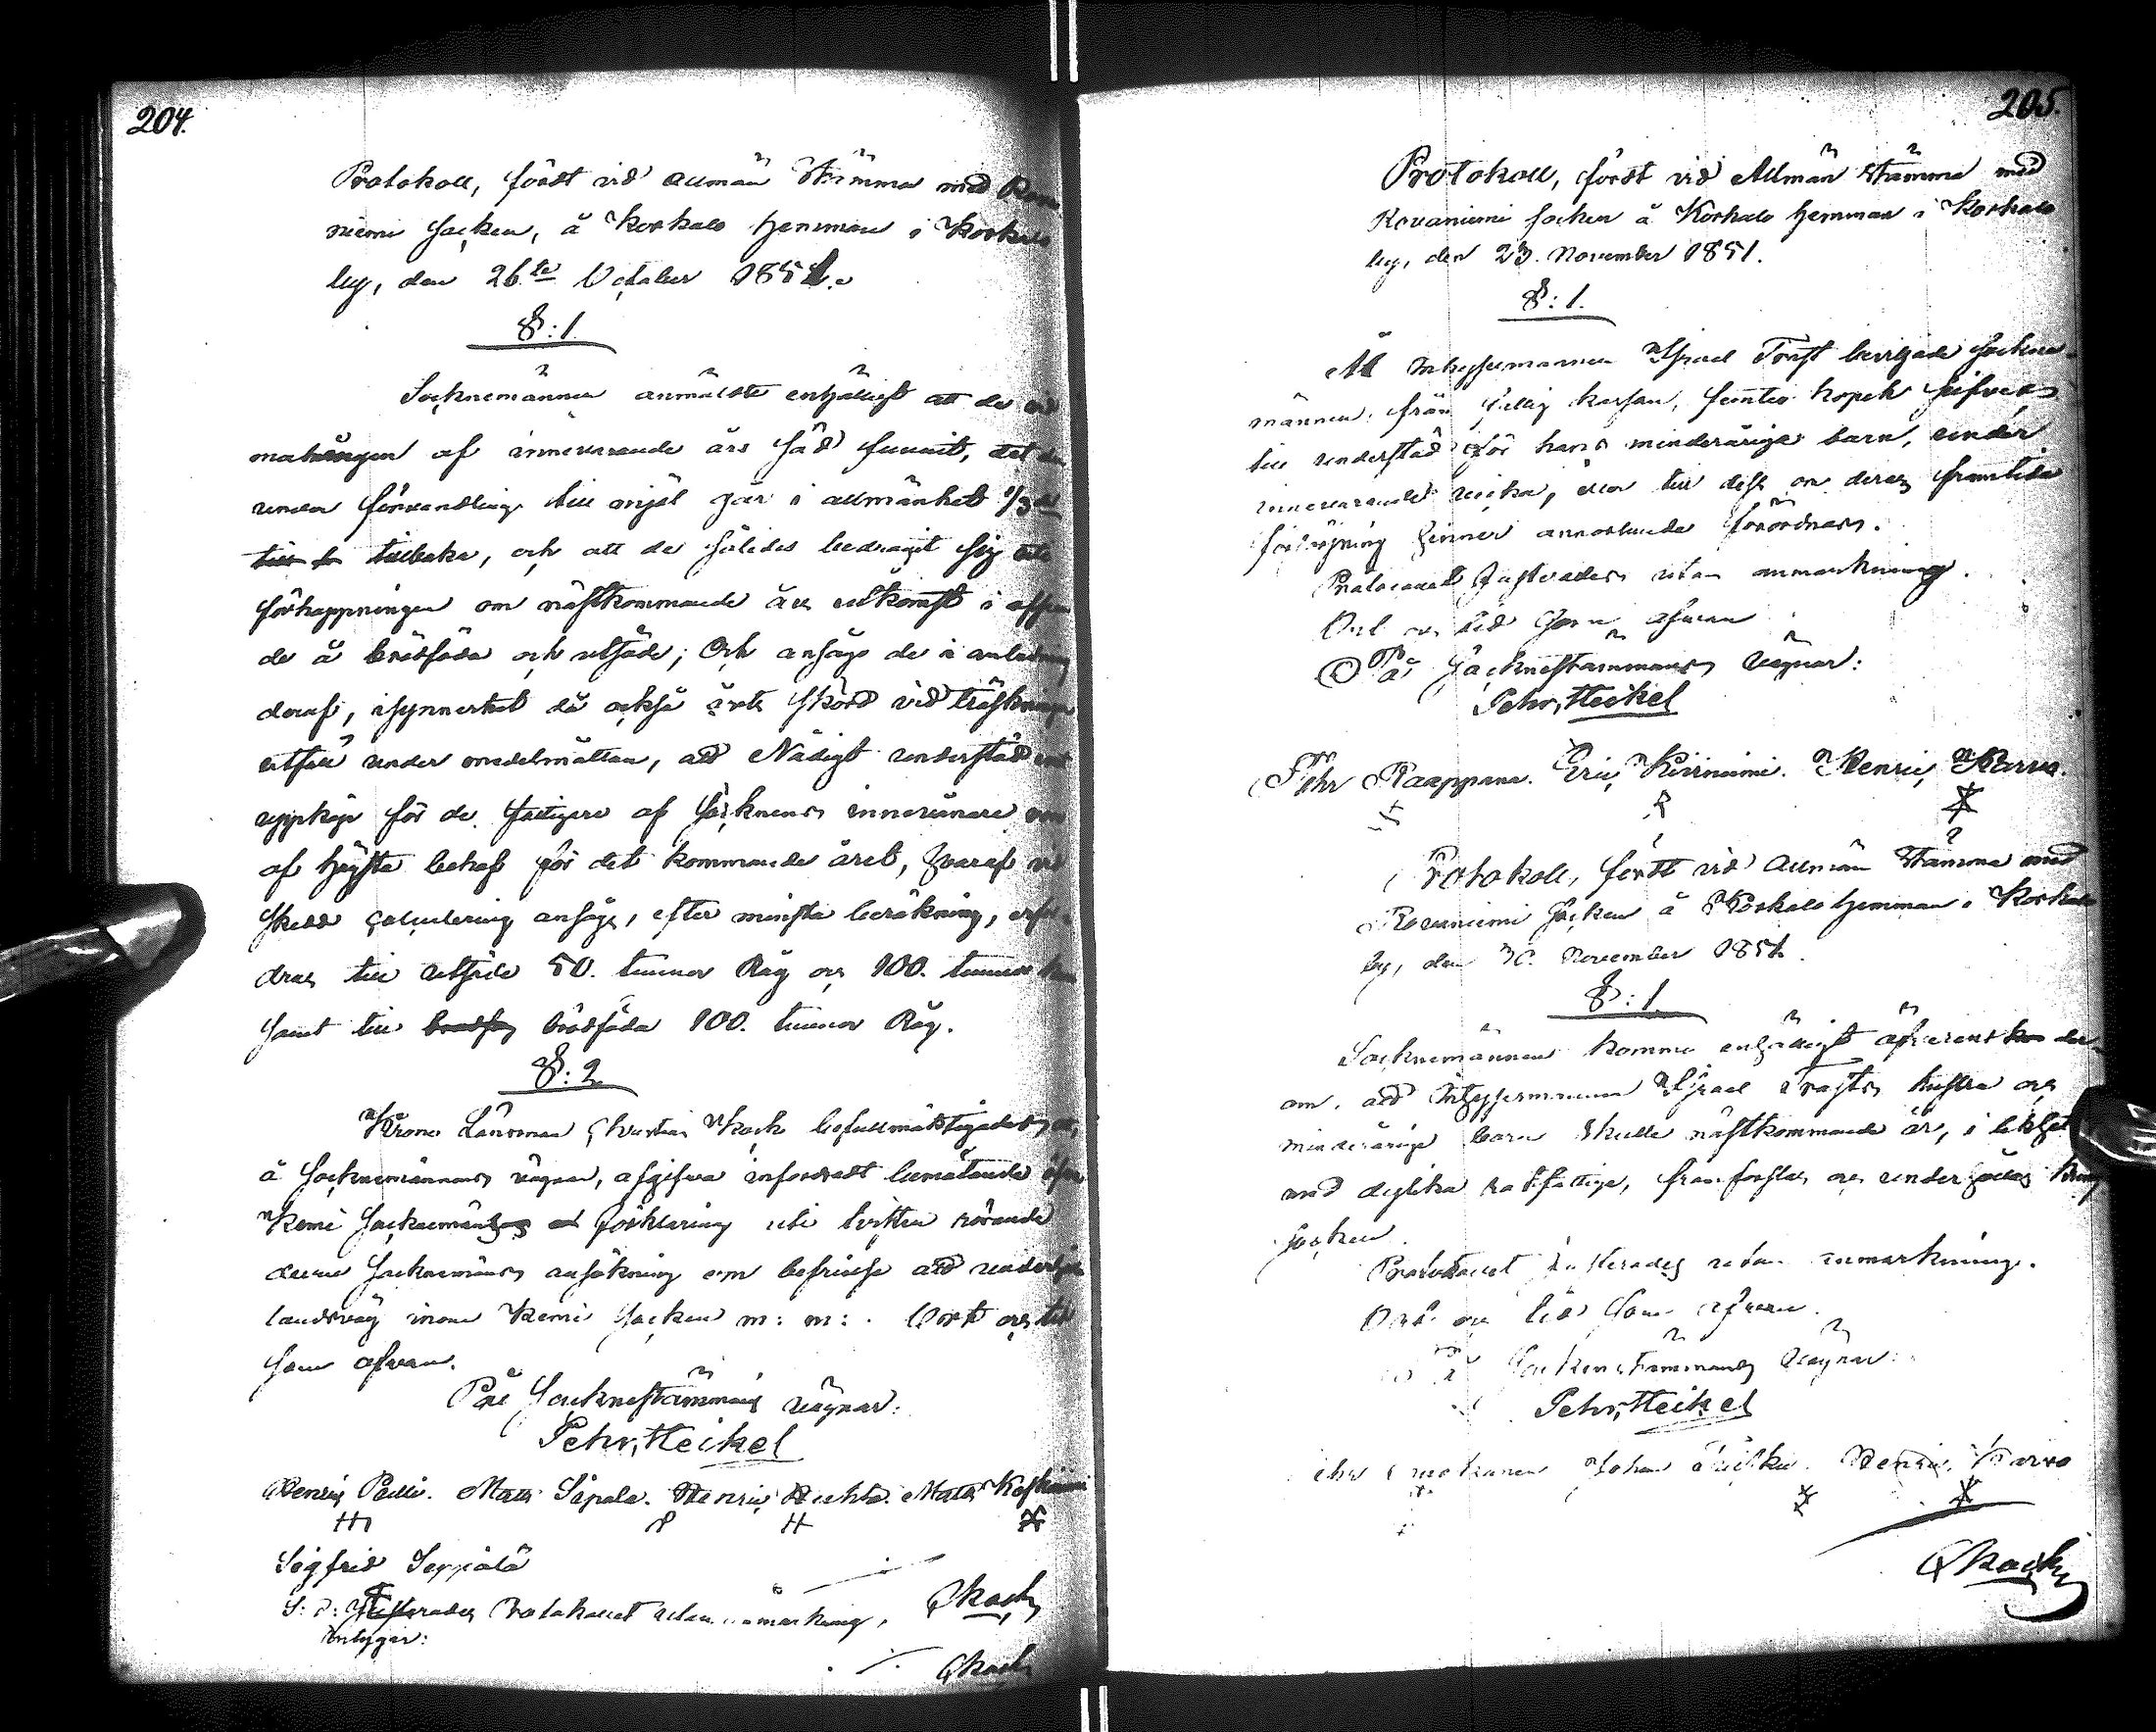 204.
Protokoll, fördt vid allmän Stämma med Rova
niemi Socken, å Korkalo hemman i Korkalo
by, den 26te October 1851.
§: 1
Socknemännen anmälte enhälligt att de vid
malningen af innevarande års säd funnit, det den
under förvandling till mjöl går i allmänhet 1/3 del
till tillbaka, och att de således bedragit sig uti
förhoppningen om nästkommande års utkomst i afseen
de å brödföda och utsäde; Och ansågo de i anledning
deraf, isynnerhet då också årets skörd vid tröskningen
utfall under medelmåttan, att Nådigt understöd
uppköp för de fattigare af Socknens innevånare vore
af högsta behof för det kommande året, hvaraf vid
skedd calculering ansågs, efter minsta beräkning, erfor-
dras till utsäde 50. tunnor Råg och 100. tunnor korn
samt till brödföda 100. tunnor Råg.
§: 2.
Krono Länsman Christian Koch befullmäktigades att
å Socknemännens vägnar, afgifva infordradt bemötande öfver
Kemi Socknemäns förklaring uti tvisten rörande
denne Socknemäns ansökning om befrielse att underhålla
landsväg inom Kemi Socken m: m: . Ort och tid
som ofvan.
På Socknestämmans vägnar:
Pehr Heikel
Henric Pelli. Matts Sipola. Henric Matts Koskiniemi
Sigfrid Seppälä
Justerades Protokollet utan anmärkning,
Intygar:
C Koch
C Koch
205.
Protokoll, fördt vid Allmän Stämma med
Rovaniemi Socken å Korkalo hemman i Korkalo
by, den 23. November 1851.
§: 1.
At Inhysesmannen Israel Torst beviljade Sockne-
männen, från fattig kassan, femtio kopek silfver
till understöd för hans minderåriga barn, under
innevarande vecka, eller till dess om deras framtida
försörjning hinner annorlunda förordnas.
Protocollet Justerades utan anmärkning.
Ort och tid som ofvan
På Socknestämmans vägnar:
Pehr Heikel
Pehr Raappana. Eric Kiriniemi. Henric Karvo.
Protokoll, fördt vid Allmän Stämma med
Rovaniemi Socken å Korkalo hemman i Korkalo
by, den 30. November 1851.
§: 1.
Socknemännen kommo enhälligt öfverens der-
om, att Inhysesmannen Israel Torsts hustru och
minderåriga barn skulle nästkommande år, i likhet
med dylika rotfattige, framforslas och underhållas kring
socken.
Protokollet Justerades utan anmärkning.
Ort och tid som ofvan.
På Sockenstämmans vägnar:
Pehr Heikel
Johan Henric Karvo
C Koch